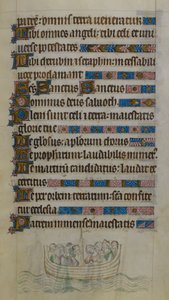 patrem omnis terra veneratur
Tibi omnes angeli tibi celi et uni
verse potestates
Tibi cherubin & seraphin incessabili
voce proclamant
Sanctus Sanctus
Dominus deus sabaoth
Pleni sunt celi & terra maiestatis
glorie tue
Te gloriosus aplorum chorus
Te prophetarum laudabilis numer
Te martirum candidatus laudat ex
ercitus
Te per orbem terrarum sca confite
tur ecclesia
Patrem inmense maiestatis